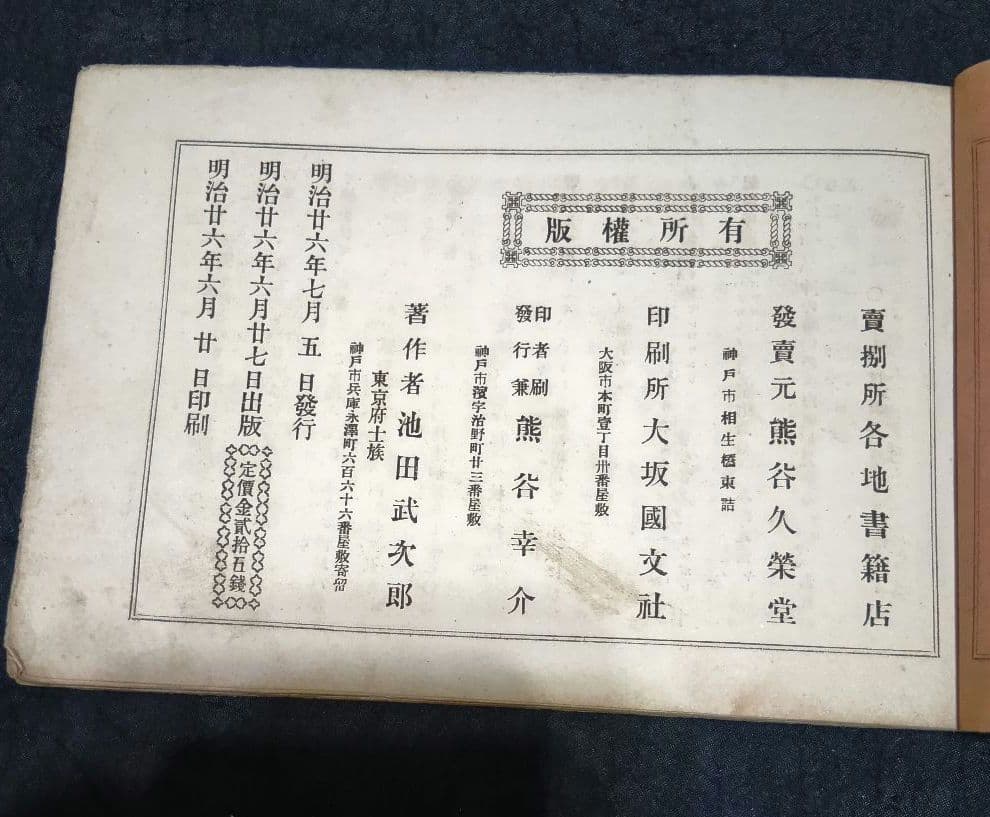 版權所有
明治廿六年六月廿日印刷
明治廿六年六月廿七日出版
定價金貳拾五錢
明治廿六年七月五日發行
神戸市兵庫永澤町六百六十六番屋敷寄留
東京府士族
著作者池田武次郎
神戸市濱宇治野町廿三番屋敷
發行兼
印者刷
熊谷幸介
大阪市本町壹丁目卅番屋敷
印刷所大坂國文社
神戸市相生橋東詰
發賣元熊谷久榮堂
賣捌所各地書籍店